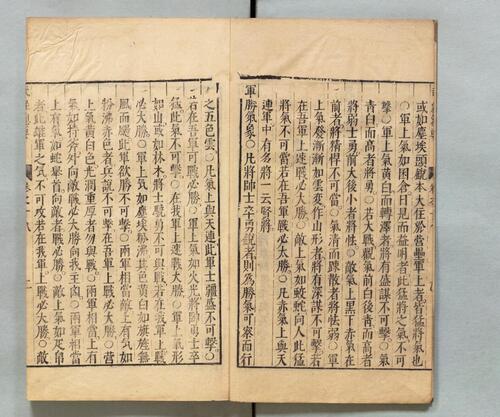 或如塵埃頭銳本大
軍上氣如囷倉日見而益明者此猛將之氣不可
擊○軍上氣黄白而轉澤者將有盛謀不可擊○氣
青白而高者將勇○若大戰氣前白後青而高者
將弱士勇前大後小者將怯○敵氣上黑下赤氣在
前者將精悍不可當○氣清而疎散者將怯弱○軍
上氣發漸漸如雲變作山形者將有深謀不可擊若
在吾軍上速戰必大勝○敵上氣如蛟蛇向人此猛
將氣不可當若在吾軍戰必太勝○凡赤氣上與天
連軍中有名將一云賢將
軍勝氣象○凡將帥士卒勇銳者則為勝氣可察而行
之五色雲○凡氣上與天連此軍士強盛不可擊○
若在吾軍可戰必勝○軍上氣如火光將帥勇士卒
猛此氣不可擊○在我軍上速戰大勝○軍上氣形
如山或如林木將士驍勇不可與戰若在我軍戰
必大勝○軍上氣如塵埃粉沸其色黄白如旗旌無
風而颺此軍欲勝不可擊○兩軍相當敵上有氣如
粉沸赤色者兵銳不可擊在吾軍上戰必大勝○營
上氣黄白色光潤重厚者勿與戰○兩軍相當上有
氣如持斧外向敵戰必大勝
上有氣如蛇舉首向敵者戰必勝○敵上氣如疋帛
者此雄軍之氣不可攻若在我軍上戰必大勝○敵